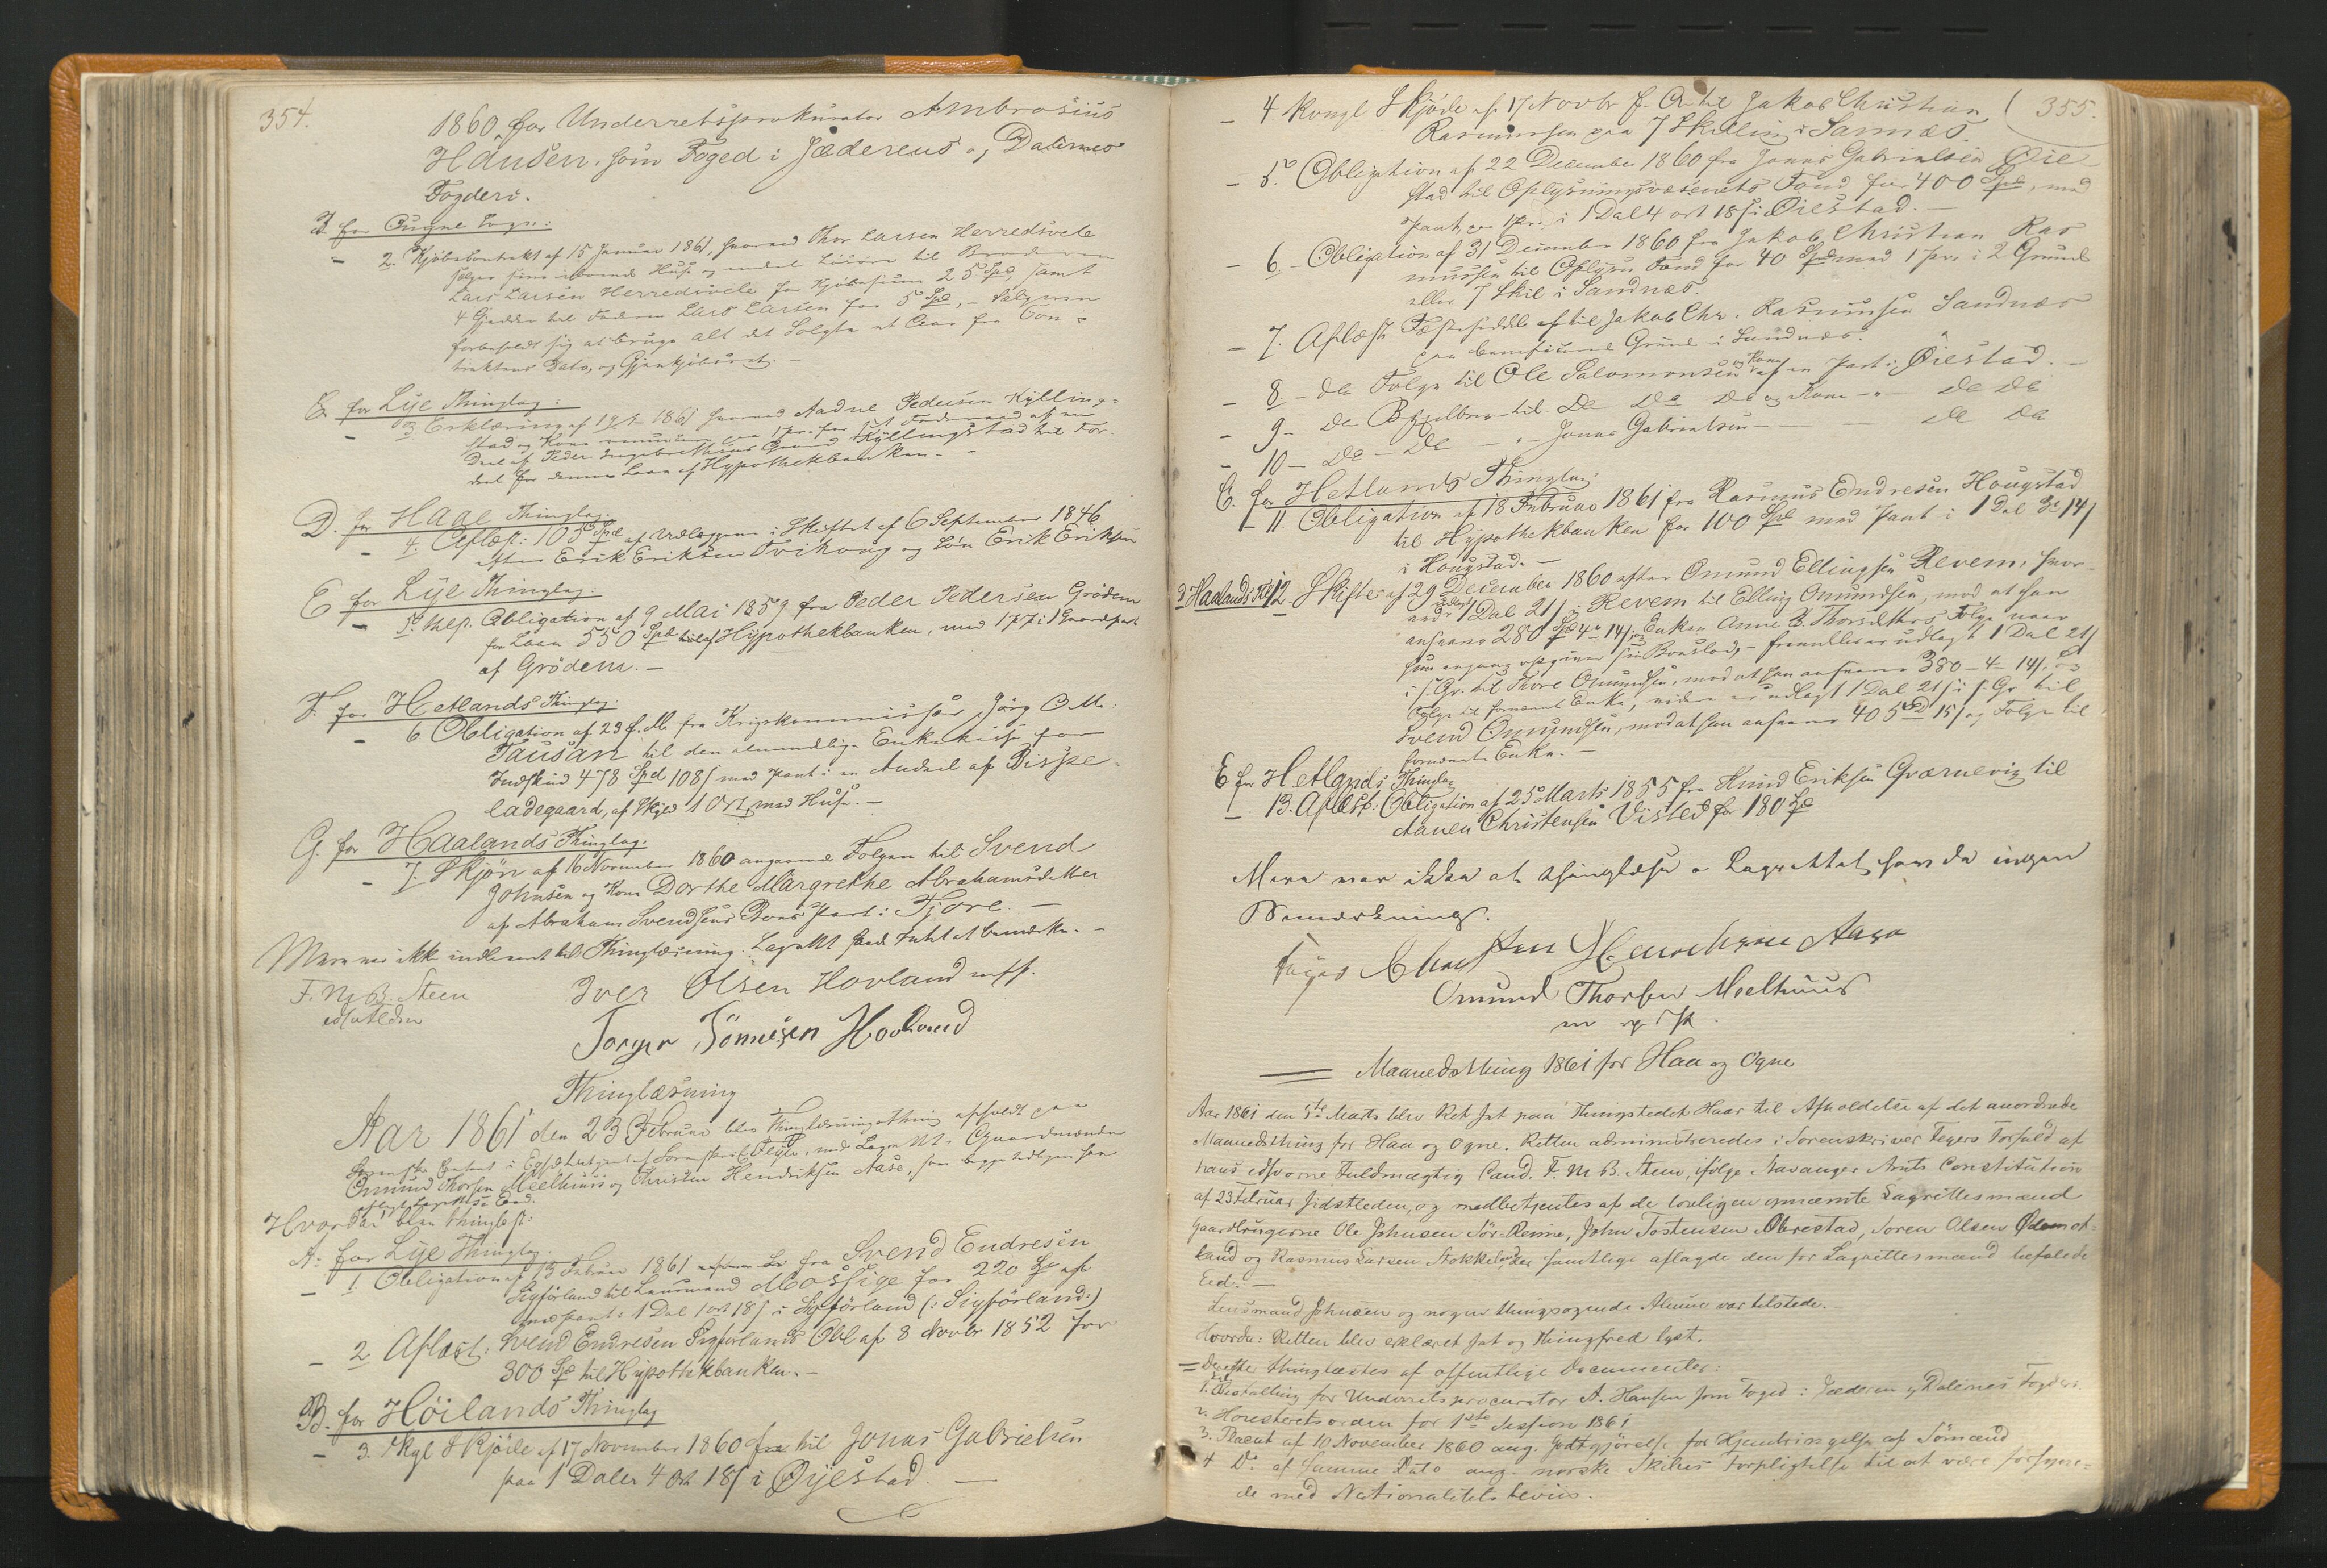 354.
1860, for Underretsprokurator Ambrosius
Hansen, som Foged i Jæderens og Dalernes
Fogderi.
B for Ougne Sogn:
- 2. Kjøbekontrakt af 15 Januar 1861, hvorved Thor Larsen Herredsvele
sælger sine iboende Huse og andet Løsøre til Broderen
Lars Larsen Herredsvele for Kjøbesum 25 Spd, samt
4 Gjædder til Faderen Lars Larsen for 5 Spd, - Sælgeren
forbeholdt sig at bruge alt det Solgte et Aar fra Con-
traktens Dato, og Gjenkjøbsret. -
C. for Lye Thinglag:
- 3 Erklæring af 1861 hvorved Aadne Pedersen Kylling-
stad og Kone
Deel af Peder Ingebrethsens Kyllingstad til For-
deel for dennes Laan af Hypothekbanken. -
D. for Haae Thinglag.
- 4. Aflæst: 105 Spd af Udlæggene i Skiftet af 6 September 1846
efter Erik Eriksen Tvihoug og Søn Erik Eriksen
E for Lye Thinglag.
- 5. Obligation af 9 Mai 1859 fra Peder Pedersen Grödem
for Laan 550 Spd til Hypothekbanken, med 1 Pr i 1 Gaardpart
af Grödem. -
F. for Hetlands Thinglag.
- 6 Obligation af 23 f. M. fra Krigskommissær Jörg O M.
Tausan til den almindelige Enkekasse for
Indskud 478 Spd 108 s med Pant i en Andeel af Bispe-
ladegaard, af Skyld 1 Ort, med Huse. -
G. for Haalands Thinglag.
- 7. Skjön af 16 November 1860 angaaende Folgen til Svend
Johnsen og Kone Dorthe Margrethe Abrahamsdatter
af Abraham Svendsens Brugs Part i Tjore. -
Mere var ikke indleveret til Thinglæsning. Lagrettet havde Intet at bemærke. -
F. M. B. Steen
Iver Olsen Hovland m f P.
Torger Tönnesen Hovland
Thinglæsning
Aar 1861 den 23 Februar blev Thinglæsningsthing afholdt paa
Sorenskriver Contoret i Egersund af Sorenskriver Feyer, med Lagrettet: Gaardmændene
Omund Thorsen Meelhuus og Christen Hendriksen Aase, som begge tidligere har
aflagt Lagrettes Eed.
Hvorda blev thinglæst:
A: for Lye Thinglag.
- 1. Obligation af 13 Februar 1861 fra Svend Endresen
Sigförland til Lensmand Mossige for 220 Spd af
med Pant i 1 Dal 1 ort 18 s i Sigförland (: Sigförland:)
- 2 Aflæst: Svend Endresen Sigförlands Obl af 8 Novbr 1852 for
300 Spd til Hypothekbanken. -
B. for Höilands Thinglag
- 3. Kgl Skjöde af 17 November 1860 til Jonas Gabrielsen
paa 1 Daler 4 Ort 18 s i Öyestad. -
355.
- 4 Kongl Skjöde af 17 Novbr f. A. til Jakob Christian
Rasmussen paa 7 Skilling i Sannæs
- 5. Obligation af 22 December 1860 fra Jonas Gabrielsen Öie
stad til Oplysningsvæsenets Fond for 400 Spd, med
Pant, 1 Pr. i 1 Dal 4 ort 18 s i Öiestad. -
- 6 - Obligation af 31 December 1860 fra Jakob Christian Ras
mussen til Oplysn Fond for 40 Spd med 1 Pr. i 2 Grunde
eller 7 Skil i Sandnæs.
- 7. Aflæst Fæsteseddel til Jakob Chr. Rasmussen Sandnæs
paa bemeldte Grund i Sandnæs.
- 8 - do Folge til Ole Salomonsen og Kone af en Part i Öiestad. -
- 9 - do Bygselbrev til do do do og Kone - " - do do
- 10 - do - do - " - Jonas Gabrielsen - - - do do
C. for Hetlands Thinglag
- 11 Obligation af 18 Februar 1861 fra Rasmus Endresen Hougstad
til Hypothekbanken for 100 Spd med Pant i 1 Dal 3 ort 14 s
i Hougstad. -
D Haalands 12. Skifte af 29 December 1860 efter Omund Ellingsen Revem, hvor-
ved 1 Dal 21 s i Revem til Elling Omundsen, mod at han
ansvarer 280 Spd 4 ort 14 s og Enken Anne B. Thorsdatters Folge naar
hun engang opgiver sin Boeslod, - fremdeles er udlagt 1 Dal 21 s
i s. Gr. til Thore Omundsen, mod at han ansvarer 380 - 4 - 14 s. og
Folge til fornævnte Enke, videre er udlagt 1 Dal 21 s i s. Gr. til
Svend Omundsen, mod at han ansvarer 405 Spd 15 s og Folge til
fornævnte Enke. -
E for Hetlands Thinglag
- 13. Aflæst: Obligation af 25 Marts 1855 fra Knud Eriksen Gværnevig til
Aanen Christensen Visted for 180 Spd
Mere var ikke at thinglæse. Lagrettet havde ingen
Bemærkning.
Feyer Christen Henriksen Aase
Omund Thorsen Meelhuus
m f P.
Maanedsthing 1861 for Haa og Ogne
Aar 1861 den 5te Marts blev Ret sat paa Thingstedet Haar til Afholdelse af det anordnede
Maanedsthing for Haa og Ogne. Retten administreredes i Sorenskriver Feyers Forfald af
hans edsvorne Fuldmægtig Cand. F. M. B. Steen, ifølge Stavanger Amts Constitution
af 23 Februar sidstleden, og medbetjentes af de lovligen opnævnte Lagrettesmænd
Gaardbrugerne Ole Johnsen Sör-Reime, John Tostensen Obrestad, Soren Olsen Ödemot-
land og Rasmus Larsen Stokkeland, der samtlige aflagde den for Lagrettesmænd befalede
Eed. -
Lensmand Johnsen og nogen thingsogende Almue var tilstede. -
Hvorda: Retten blev erklæret sat og Thingfred lyst.
= Derefter thinglæstes af offentlige Documenter:
1. Bestalling for Underretsprocurator A. Hansen som Foged i Jæderen og Dalernes Fogderi
2. Høiesteretsorden for 1ste Session 1861
3. Placat af 10 November 1860 ang. Godtgjörelse for Hjembringelse af Sömænd
4 Do af samme Dato ang. norske Skibes Forpligtelse til at være forsyne-
de med Nationalitets beviis.